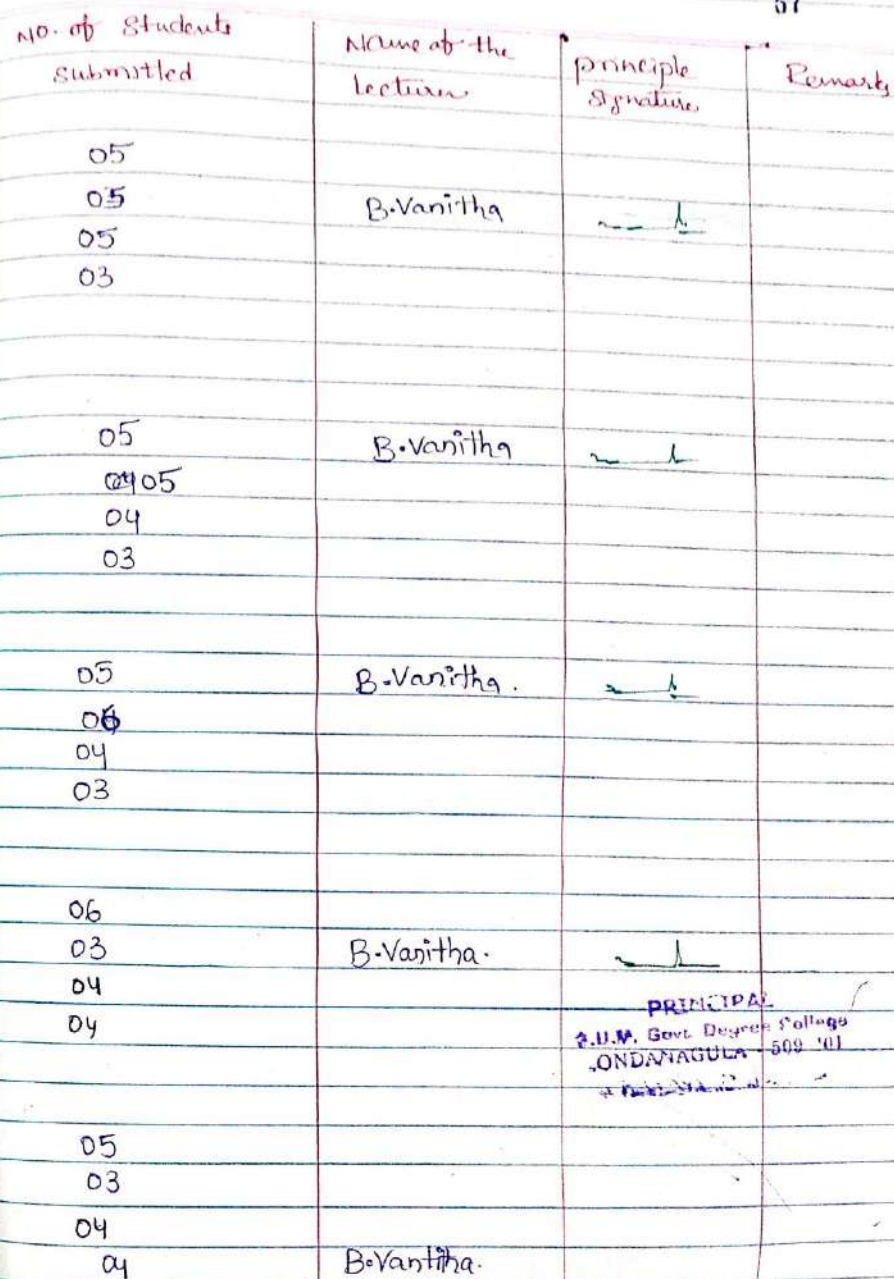 No. of Students Submitted
Name of the lecturer
principle Signature
Remarks
05
05 B.Vanitha
05
03
05 B.Vanitha
05
04
03
05 B.Vanitha.
04
03
06
03 B.Vanitha.
04
04
PRINCIPAL
Govt. Degree College
05
03
04
04 B.Vantiha.